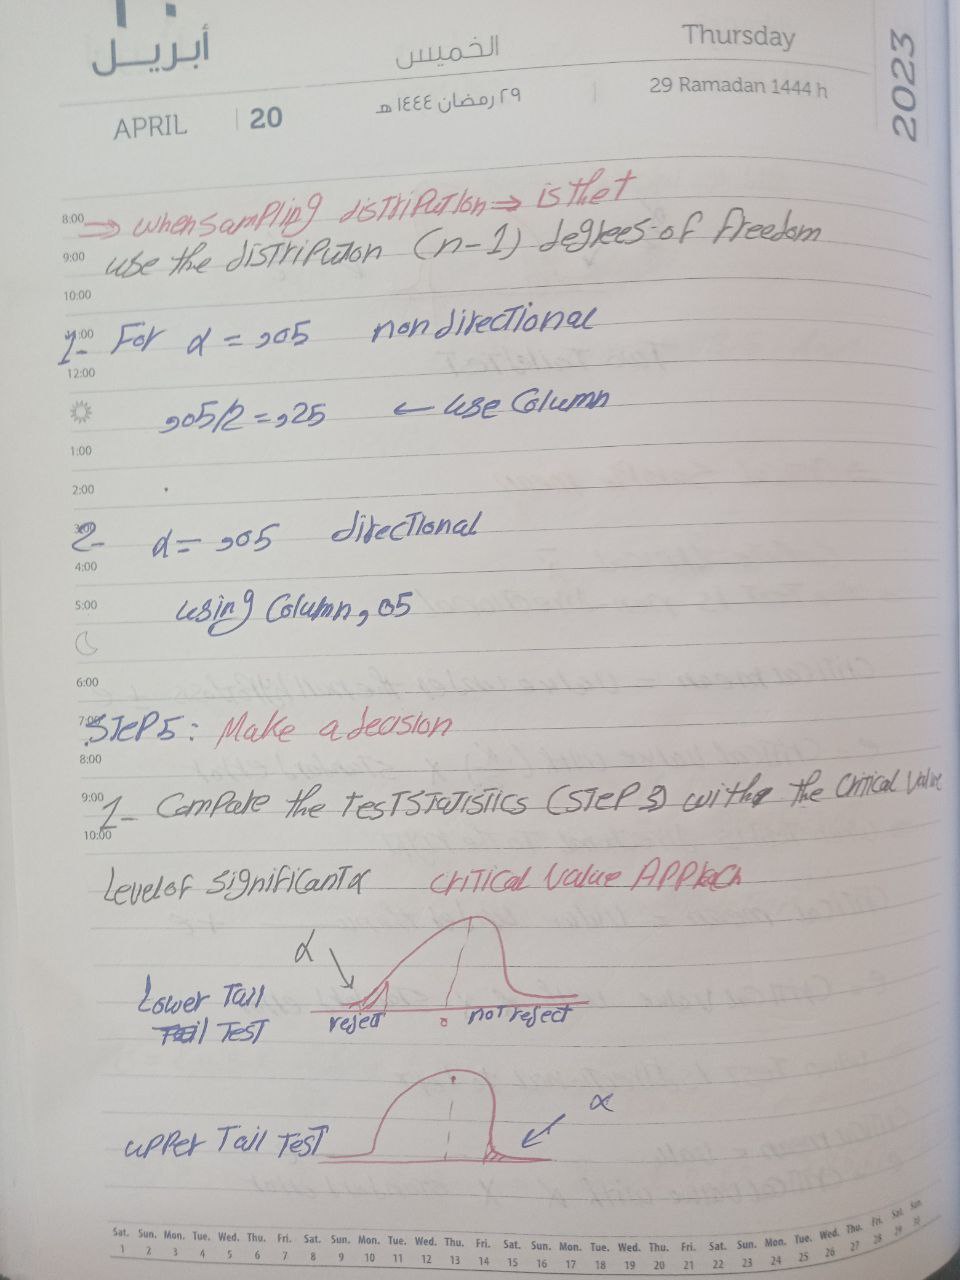 أبريل
الخميس
Thursday
2023
APRIL 20
٢٩ رمضان ١٤٤٤ هـ
29 Ramadan 1444 h
8:00
⇒ when sampling distribution ⇒ is the t
9:00
use the distribution (n-1) degrees of freedom
10:00
11:00
1- For α = ,05 nondirectional
12:00
,05/2 = ,25 ← use Column
1:00
2:00
3:00
2- α = ,05 directional
4:00
5:00
using Column ,05
6:00
7:00
STEP5: Make a decision
8:00
9:00
1- Compare the TEST STATISTICS (STEP 3) with the Critical Value
10:00
Level of significant α Critical Value APProach
α
Lower Tail
Tail TEST
reject 0 not reject
α
upper Tail TEST
Sat. Sun. Mon. Tue. Wed. Thu. Fri. Sat. Sun. Mon. Tue. Wed. Thu. Fri. Sat. Sun. Mon. Tue. Wed. Thu. Fri. Sat. Sun. Mon. Tue. Wed. Thu. Fri. Sat. Sun.
1 2 3 4 5 6 7 8 9 10 11 12 13 14 15 16 17 18 19 20 21 22 23 24 25 26 27 28 29 30